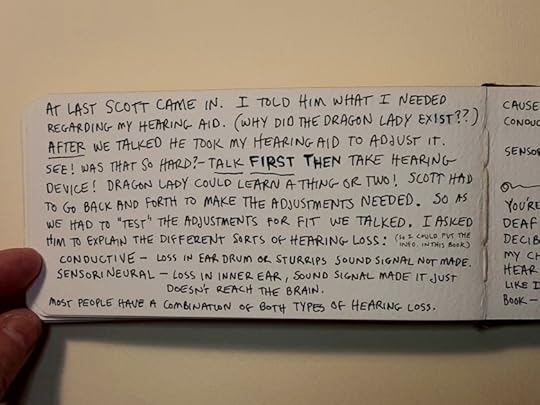 AT LAST SCOTT CAME IN. I TOLD HIM WHAT I NEEDED
REGARDING MY HEARING AID. (WHY DID THE DRAGON LADY EXIST??)
AFTER WE TALKED HE TOOK MY HEARING AID TO ADJUST IT.
SEE! WAS THAT SO HARD?- TALK FIRST THEN TAKE HEARING
DEVICE! DRAGON LADY COULD LEARN A THING OR TWO! SCOTT HAD
TO GO BACK AND FORTH TO MAKE THE ADJUSTMENTS NEEDED. SO AS
WE HAD TO "TEST" THE ADJUSTMENTS FOR FIT WE TALKED. I ASKED
HIM TO EXPLAIN THE DIFFERENT SORTS OF HEARING LOSS: (SO I COULD PUT THE
INFO. IN THIS BOOK)
CONDUCTIVE - LOSS IN EAR DRUM OR STURRIPS SOUND SIGNAL NOT MADE.
SENSORINEURAL - LOSS IN INNER EAR, SOUND SIGNAL MADE IT JUST
DOESN'T REACH THE BRAIN.
MOST PEOPLE HAVE A COMBINATION OF BOTH TYPES OF HEARING LOSS.
CAUSE
CONDUC
SENSOR
YOU'RE
DEAF
DECIB
MY CH
HEAR
LIKE I
BOOK -